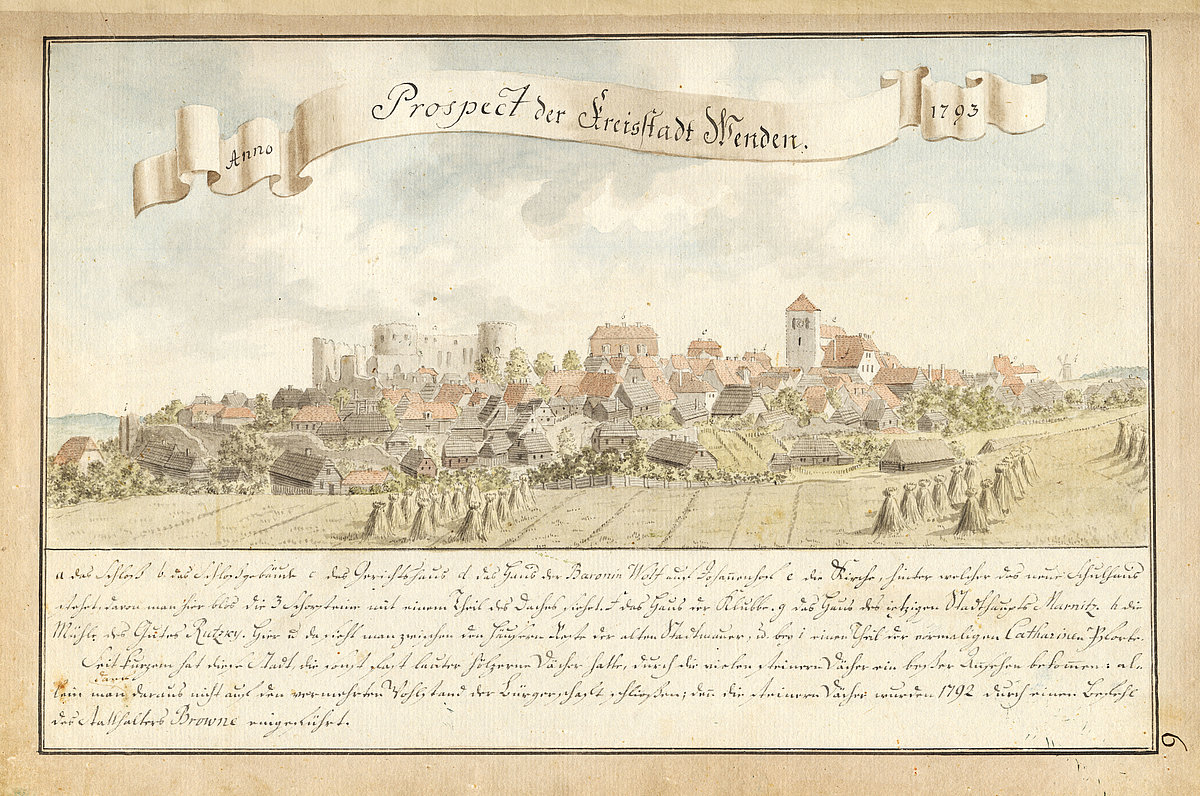 Anno
Prospect der Kreisstadt Wenden.
1793
a das Schloß b das Schloßgebäude c das Gerichtshaus d das Haus der Baronin Wolf aus Johannenhof e die Kirche, hinter welcher das neue Schulhaus
stehet, davon man hier blos die 3 Schorsteine mit einem Theil des Daches siehet. f das Haus der Klubbe. g das Haus des jetzigen Stadthaupts Marnitz. h die
Mühle des Gutes Rutzky. Hier u. da sieht man zwischen den Häusern Reste der alten Stadtmauer, u. bey i einen Theil der vormaligen Catharinen Pforte.
Seit kurzem hat diese Stadt, die sonst fast lauter hölzerne Dächer hatte, durch die vielen steinern Dächer ein besser Ansehen bekommen: al-
lein man darf daraus nicht auf den vermehrten Wohlstand der Bürgerschaft schließen; denn die steinern Dächer wurden 1792 durch einen Befehl
des Statthalters Browne eingeführt.
9